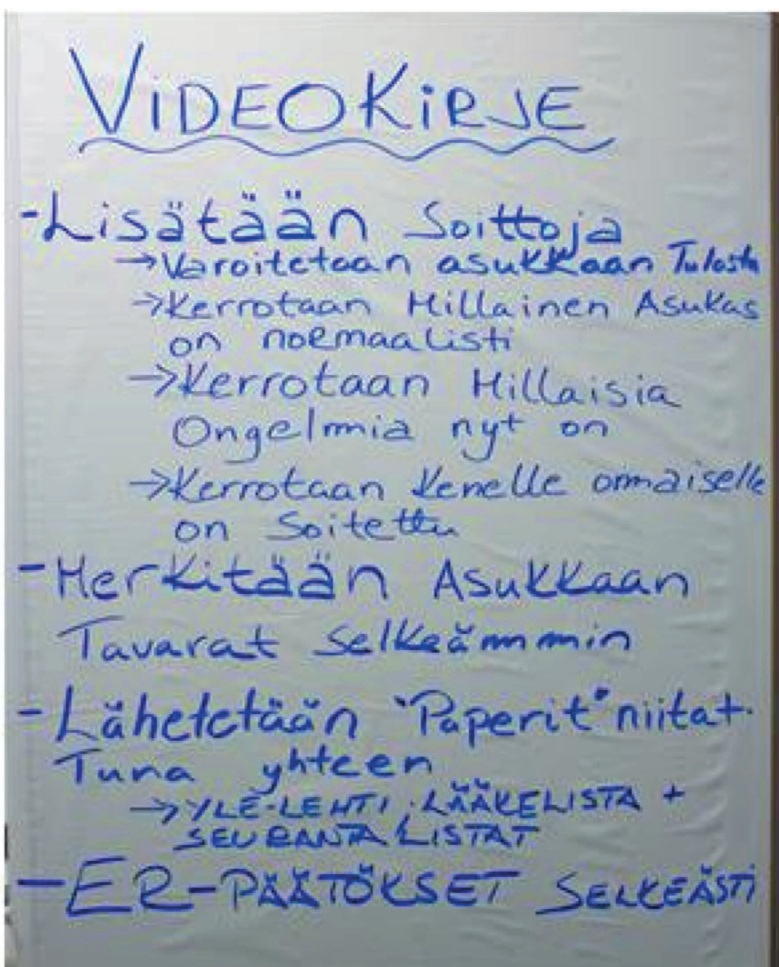 VIDEOKIRJE
- Lisätään Soittoja
→ Varoitetaan asukkaan Tulosta
→ Kerrotaan Millainen Asukas
on normaalisti
→ Kerrotaan Millaisia
Ongelmia nyt on
→ Kerrotaan Kenelle omaiselle
on Soitettu
- Merkitään Asukkaan
Tavarat selkeämmin
- Lähetetään "Paperit" niitat-
Tuna yhteen
→ YLE-LEHTI, LÄÄKELISTA +
SEURANTALISTAT
- ER-PÄÄTÖKSET SELKEÄSTI